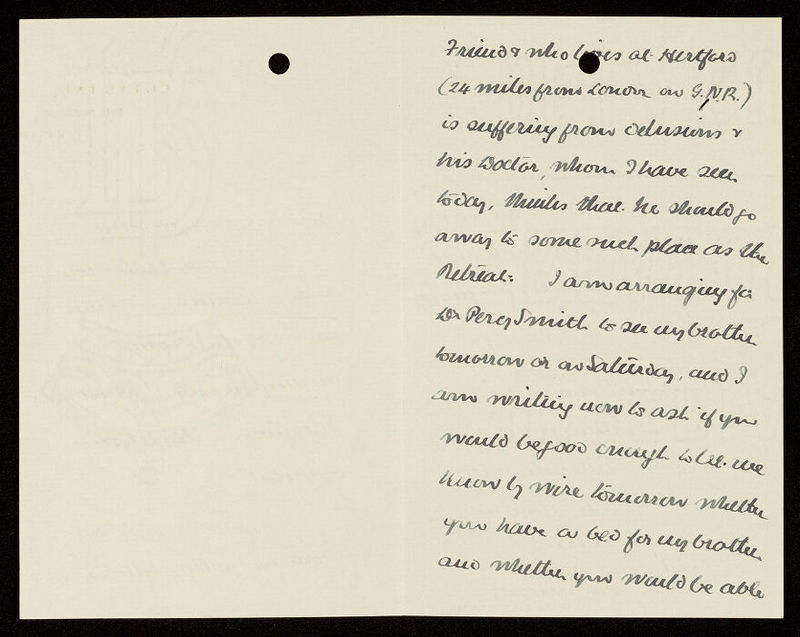 Friend & who lives at Hertford
(24 miles from London on G.N.R.)
is suffering from delusions &
his Doctor, whom I have seen
today, thinks that he should go
away to some such place as the
Retreat. I am arranging for
Dr Percy Smith to see my brother
tomorrow or on Saturday, and I
am writing now to ask if you
would be good enough to let me
know by wire tomorrow whether
you have a bed for my brother
and whether you would be able